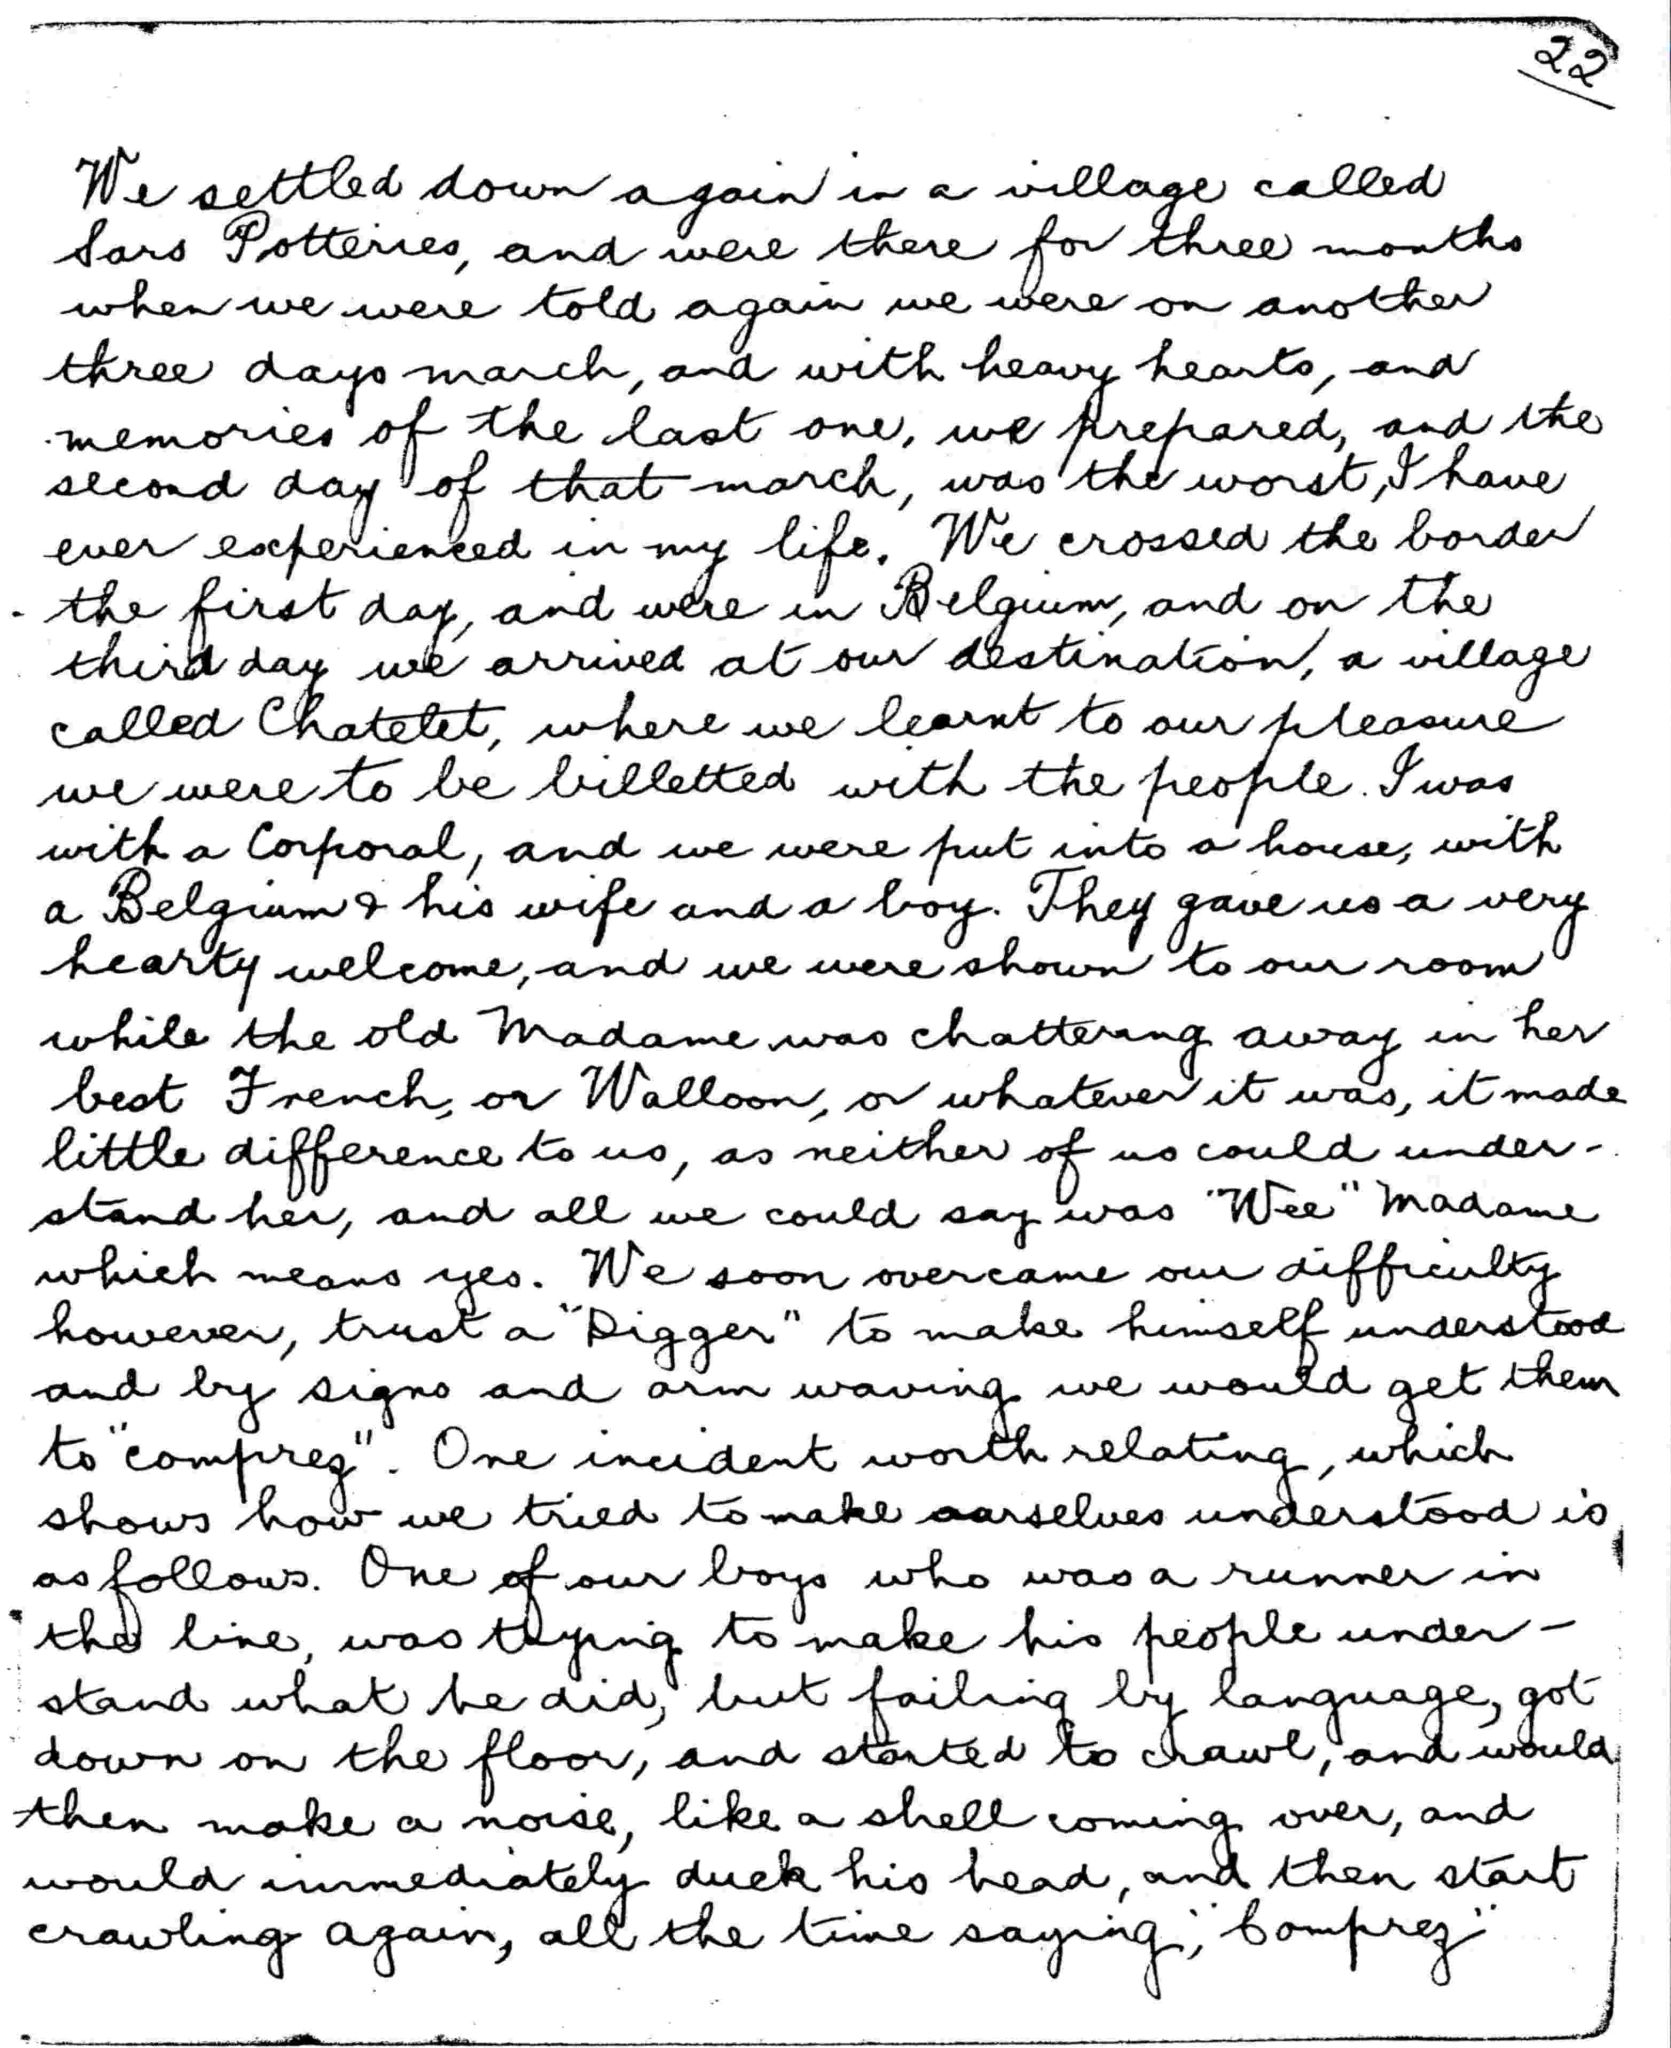 22
We settled down again in a village called
Sars Potteries, and were there for three months
when we were told again we were on another
three days march, and with heavy hearts, and
memories of the last one, we prepared, and the
second day of that march, was the worst, I have
ever experienced in my life. We crossed the border
the first day, and were in Belgium, and on the
third day we arrived at our destination, a village
called Chatelet, where we learnt to our pleasure
we were to be billetted with the people. I was
with a Corporal, and we were put into a house, with
a Belgium & his wife and a boy. They gave us a very
hearty welcome, and we were shown to our room
while the old Madame was chattering away in her
best French, or Walloon, or whatever it was, it made
little difference to us, as neither of us could under-
stand her, and all we could say was "Wee" Madame
which means yes. We soon overcame our difficulty
however, trust a "Digger" to make himself understood
and by signs and arm waving we would get them
to "comprez". One incident worth relating, which
shows how we tried to make ourselves understood is
as follows. One of our boys who was a runner in
the line, was trying to make his people under-
stand what he did, but failing by language, got
down on the floor, and started to crawl, and would
then make a noise, like a shell coming over, and
would immediately duck his head, and then start
crawling again, all the time saying, "Comprez"